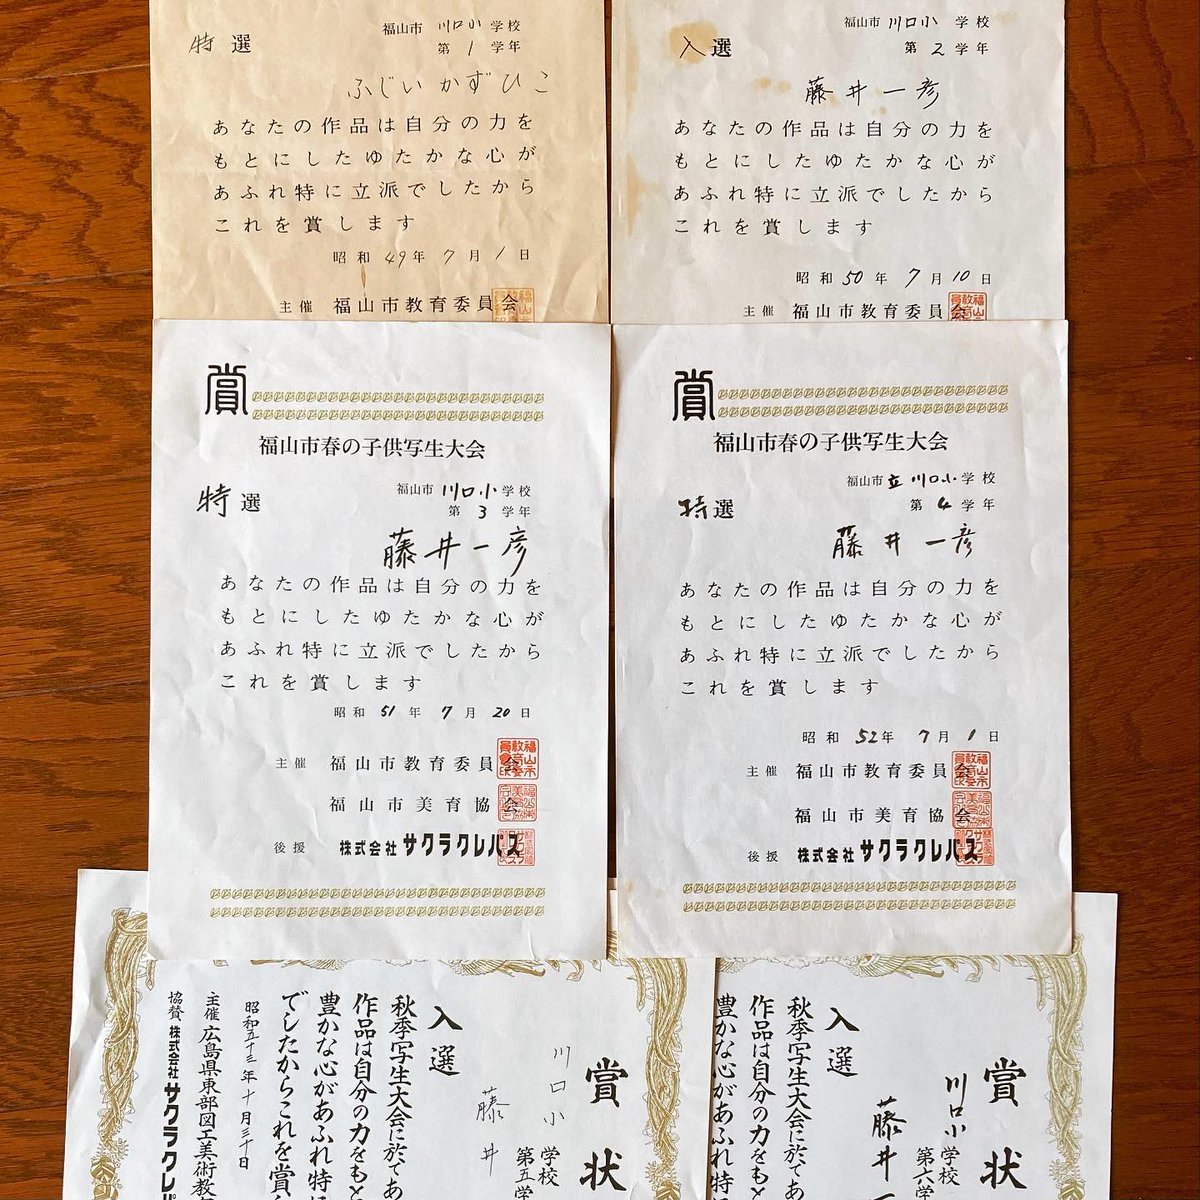 福山市 川口小 学校
特選
第1学年
ふじい かずひこ
あなたの作品は自分の力を
もとにしたゆたかな心が
あふれ特に立派でしたから
これを賞します
昭和49年7月1日
主催 福山市教育委員会
福山市 川口小 学校
入選
第2学年
藤井一彦
あなたの作品は自分の力を
もとにしたゆたかな心が
あふれ特に立派でしたから
これを賞します
昭和50年7月10日
主催 福山市教育委員会
賞
福山市春の子供写生大会
福山市 川口小学校
特選
第3学年
藤井一彦
あなたの作品は自分の力を
もとにしたゆたかな心が
あふれ特に立派でしたから
これを賞します
昭和51年7月20日
主催 福山市教育委員会
福山市美育協会
後援 株式会社サクラクレパス
賞
福山市春の子供写生大会
福山市立川口小学校
特選
第4学年
藤井一彦
あなたの作品は自分の力を
もとにしたゆたかな心が
あふれ特に立派でしたから
これを賞します
昭和52年7月1日
主催 福山市教育委員会
福山市美育協会
後援 株式会社サクラクレパス
賞状
川口小学校
第五学
藤井
入選
秋季写生大会に於てあ
作品は自分の力をもと
豊かな心があふれ特に
でしたからこれを賞
昭和五十三年十月三十日
主催 広島県東部図工美術教
協賛 株式会社サクラクレパ
賞状
川口小学校
第六学
藤井一
入選
秋季写生大会に於てあ
作品は自分の力をもと
豊かな心があふれ特